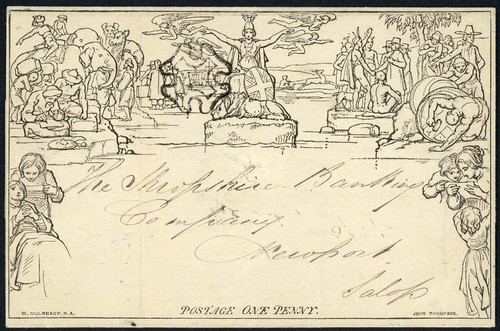 The Shropshire Banking
Company
Newport
Salop
W. MULREADY. R.A.
POSTAGE ONE PENNY.
JOHN THOMPSON.